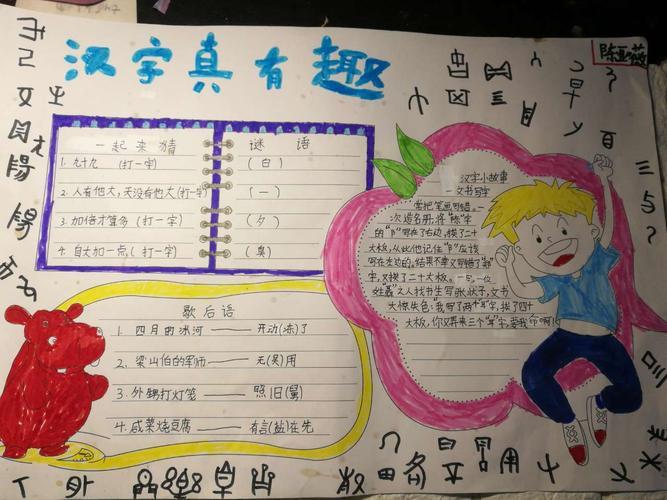 汉字真有趣
陈亚薇
一起来猜
谜语
1. 九十九 (打一字)
(白)
2. 人有他大,天没有他大(打一字)
(一)
3. 加倍才算多 (打一字)
(夕)
4. 自大加一点,(打一字)
(臭)
歇后语
1. 四月的冰河——开动(冻)了
2. 梁山伯的军师——无(吴)用
3. 外甥打灯笼——照旧(舅)
4. 咸菜烧豆腐——有言(盐)在先
汉字小故事
一文书写字
常把笔画写错。一
次造名册,将“陈”字
的“阝”写在了右边,挨了二十
大板,从此他记住“阝”应该
写在左边的,结果不幸又写错了“郑”
字,又挨了二十大板。一日,一位
姓“聂”之人找书生写张状子,文书
大惊失色:“我写了两个“耳”字,挨了四十
大板,你又弄来三个“耳”字,要我命啊